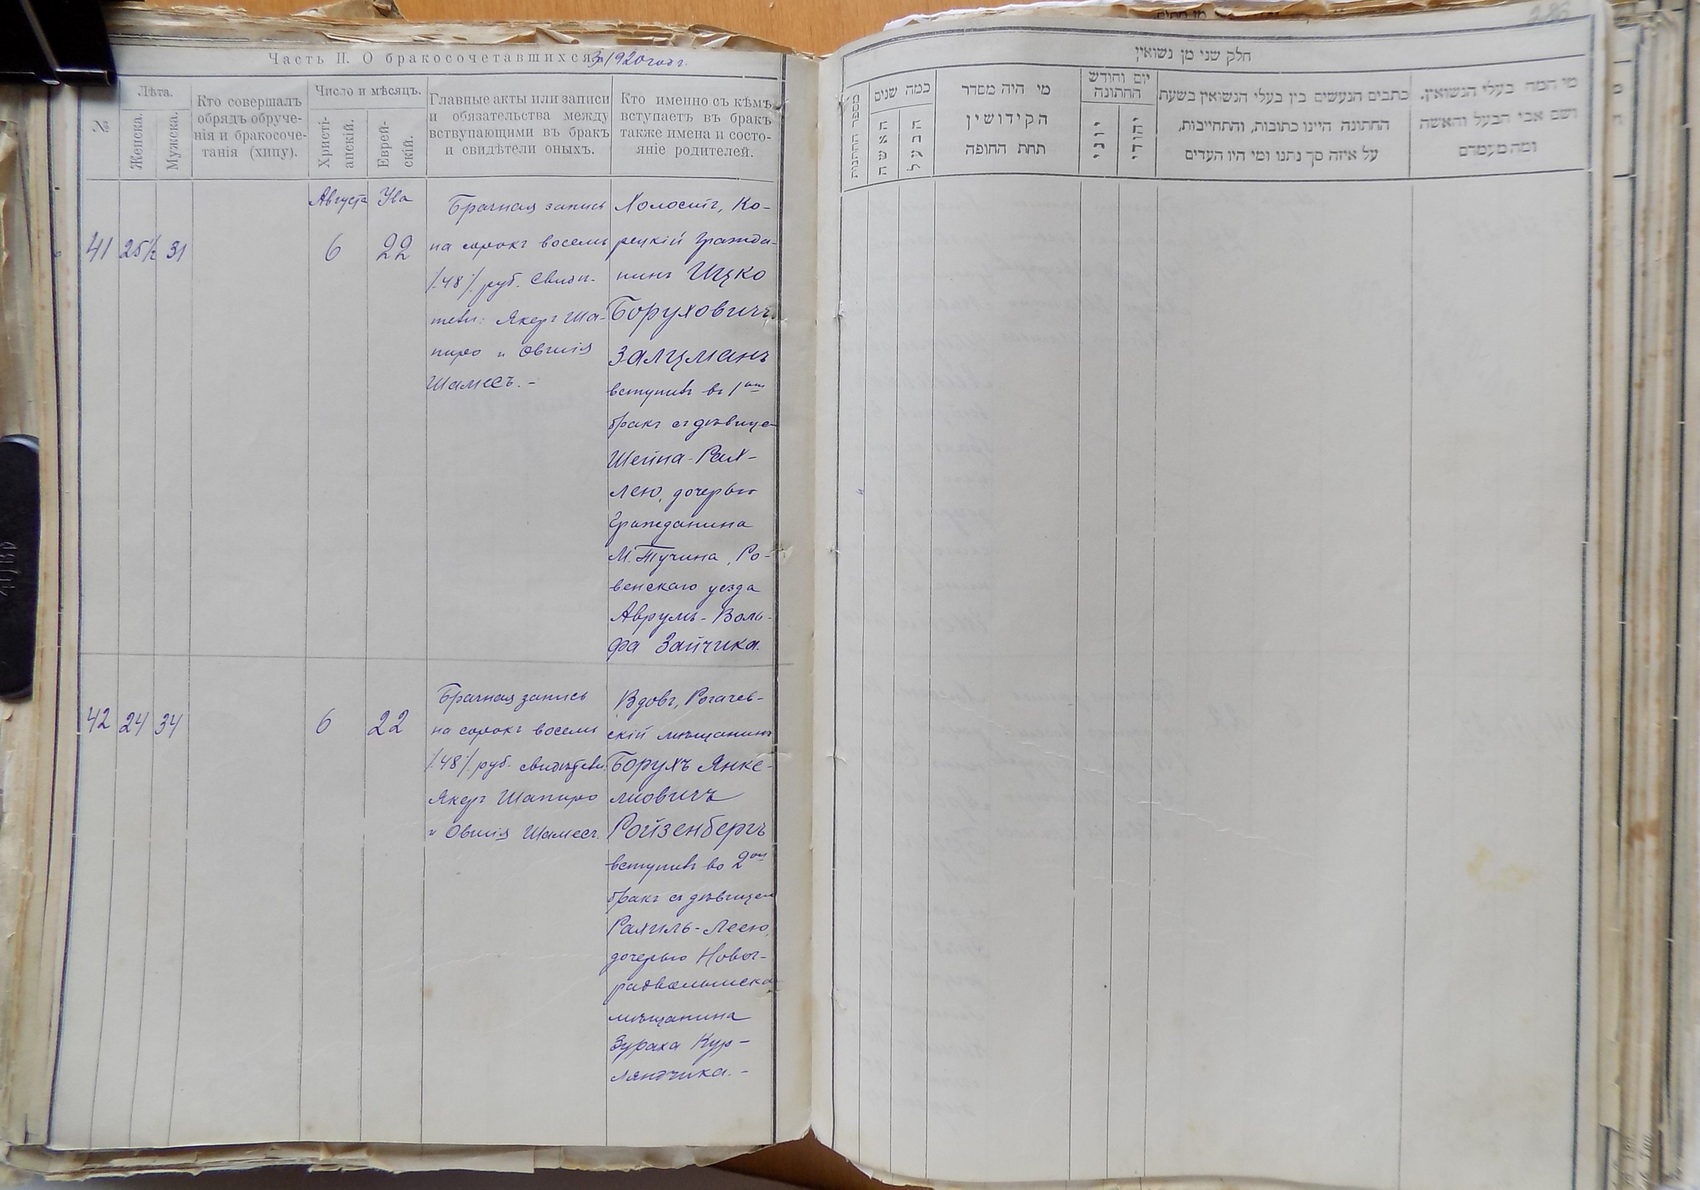 Часть II. О бракосочетавшихся за 1920 годъ.
№
Лѣта.
Женска.
Мужска.
Кто совершалъ
обрядъ обруче-
нія и бракосоче-
танія (хипу).
Число и мѣсяцъ.
Христі-
анскій.
Еврей-
скій.
Главные акты или записи
и обязательства между
вствупающими въ бракъ
и свидѣтели оныхъ.
Кто именно съ кѣмъ
вступаетъ въ бракъ
также имена и состо-
яніе родителей.
Августа
Ува
41
25½
31
6
22
Брачная запись
на сорокъ восемь
/.48/. руб. Свидѣ-
тели: Якеръ Ша-
пиро и Овшія
Шамесъ. -
Холостъ, Ко-
рецкій гражда-
нинъ Ицко
Боруховичъ
Залцманъ
вступилъ въ 1ый
бракъ съ дѣвицею
Шейна-Рах-
лею, дочерью
гражданина
М. Тучина, Ро-
венскаго уезда
Аврумъ-Воль-
фа Зайчика.
42
24
34
6
22
Брачная запись
на сорокъ восемь
/.48/. руб. свидѣтели
Якеръ Шапиро
и Овшія Шамесъ.
Вдовъ, Рогачев-
скій мѣщанинъ
Борухъ Янке-
лиовичъ
Ройзенбергъ
вступилъ во 2ой
бракъ съ дѣвицею
Рахиль-Леею,
дочерью Новог-
радволынскаго
мѣщанина
Зураха Кур-
ляндчика. -
חלק שני מן נשואין
מספר החתונות
כמה שנים
האשה
הבעל
מי היה מסדר
הקידושין
תחת החופה
יום וחודש
החתונה
יוני
יהודי
כתבים הנעשים בין בעלי הנשואין בשעת
החתונה היינו כתובות, והתחייבות,
על איזה סך נתנו ומי היו העדים
מי המה בעלי הנשואין.
ושם אבי הבעל והאשה
ומה מעמדם